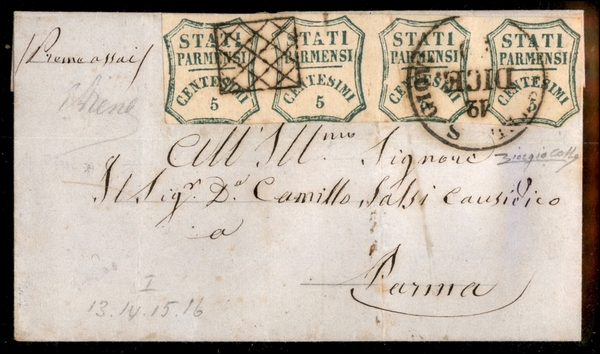 STATI PARMENSI CENTESIMI 5
STATI PARMENSI CENTESIMI 5
STATI PARMENSI CENTESIMI 5
STATI PARMENSI CENTESIMI 5
12 DICE
Preme assai
All'Ill.mo Signore
Il Sig.r D.r Camillo Salsi Causidico
a
Parma
I
13.14.15.16